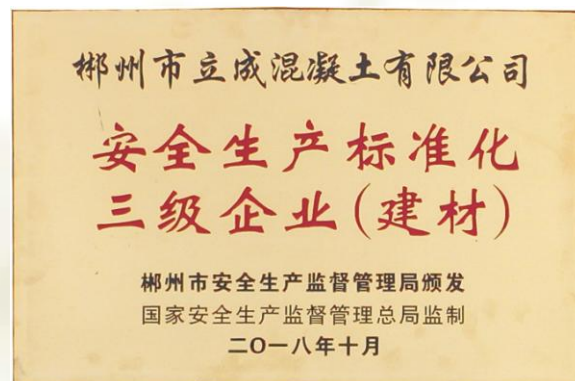 郴州市立成混凝土有限公司
安全生产标准化
三级企业(建材)
郴州市安全生产监督管理局颁发
国家安全生产监督管理总局监制
二〇一八年十月